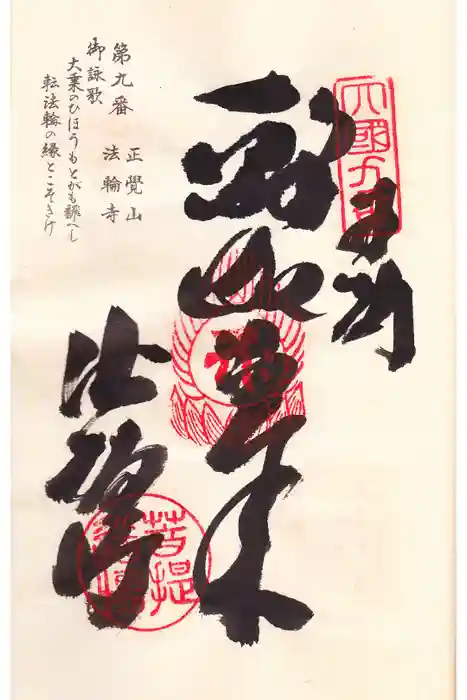 四國九番
奉納
釈迦如来
法輪寺
菩提
第九番 正覺山
法輪寺
御詠歌
大乗のひほうもとがも飜へし
転法輪の縁とこそきけ